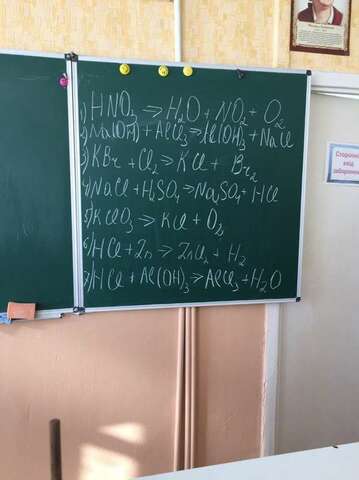 1) HNO₃ → H₂O + NO₂ + O₂
2) Na(OH) + AlCl₃ → Al(OH)₃ + NaCl
3) KBr + Cl₂ → KCl + Br₂
4) NaCl + H₂SO₄ → Na₂SO₄ + HCl
5) KClO₃ → KCl + O₂
6) HCl + Zn → ZnCl₂ + H₂
7) HCl + Al(OH)₃ → AlCl₃ + H₂O
Стороннім
вхід
заборонено